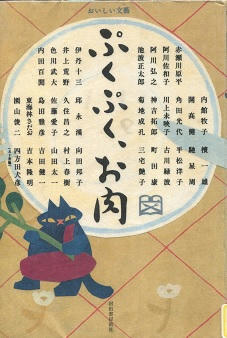 おいしい文藝
ぷくぷく、お肉
赤瀬川原平
阿川佐和子
阿川弘之
池波正太郎
伊丹十三
井上荒野
色川武大
内田百閒
内館牧子
開高健
角田光代
川上未映子
神吉拓郎
菊地成孔
邱永漢
久住昌之
佐藤愛子
島田雅彦
東海林さだお
園山俊二
檀一雄
馳星周
平松洋子
古川緑波
町田康
三宅艶子
向田邦子
村上春樹
山田太一
吉田健一
吉本隆明
四方田犬彦
河出書房新社